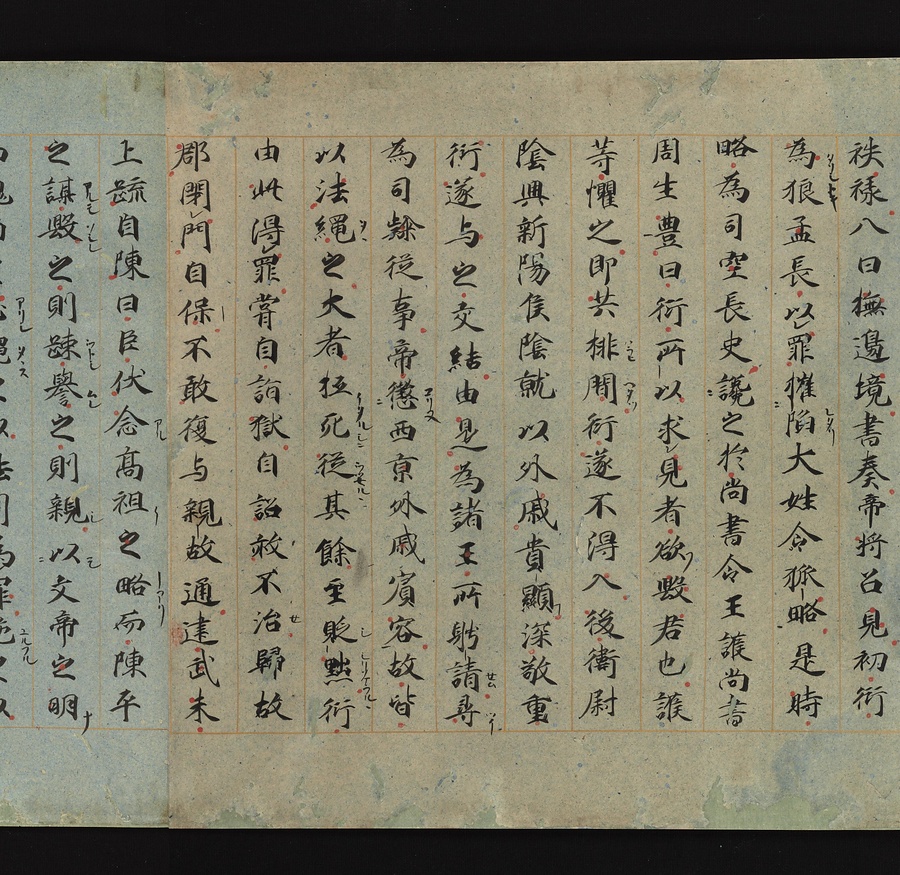 秩禄八曰撫邊境書奏帝将召見初衍
為狼孟長以罪摧陷大姓令狐略是時
略為司空長史讒之於尚書令王護尚書
周生豊曰衍所以求見者欲毀君也護
等懼之即共排間衍遂不得入後衛尉
陰興新陽侯陰就以外戚貴顯深敬重
衍遂与之交結由是為諸王所聘請尋
為司隷従事帝懲西京外戚賓客故皆
以法繩之大者抵死従其餘至貶黜衍
由此得罪甞自詣獄自詔赦不治歸故
郡閇門自保不敢復与親故通建武末
上䟽自陳曰臣伏念髙祖之略而陳平
之謀毀之則疎譽之則親以文帝之明